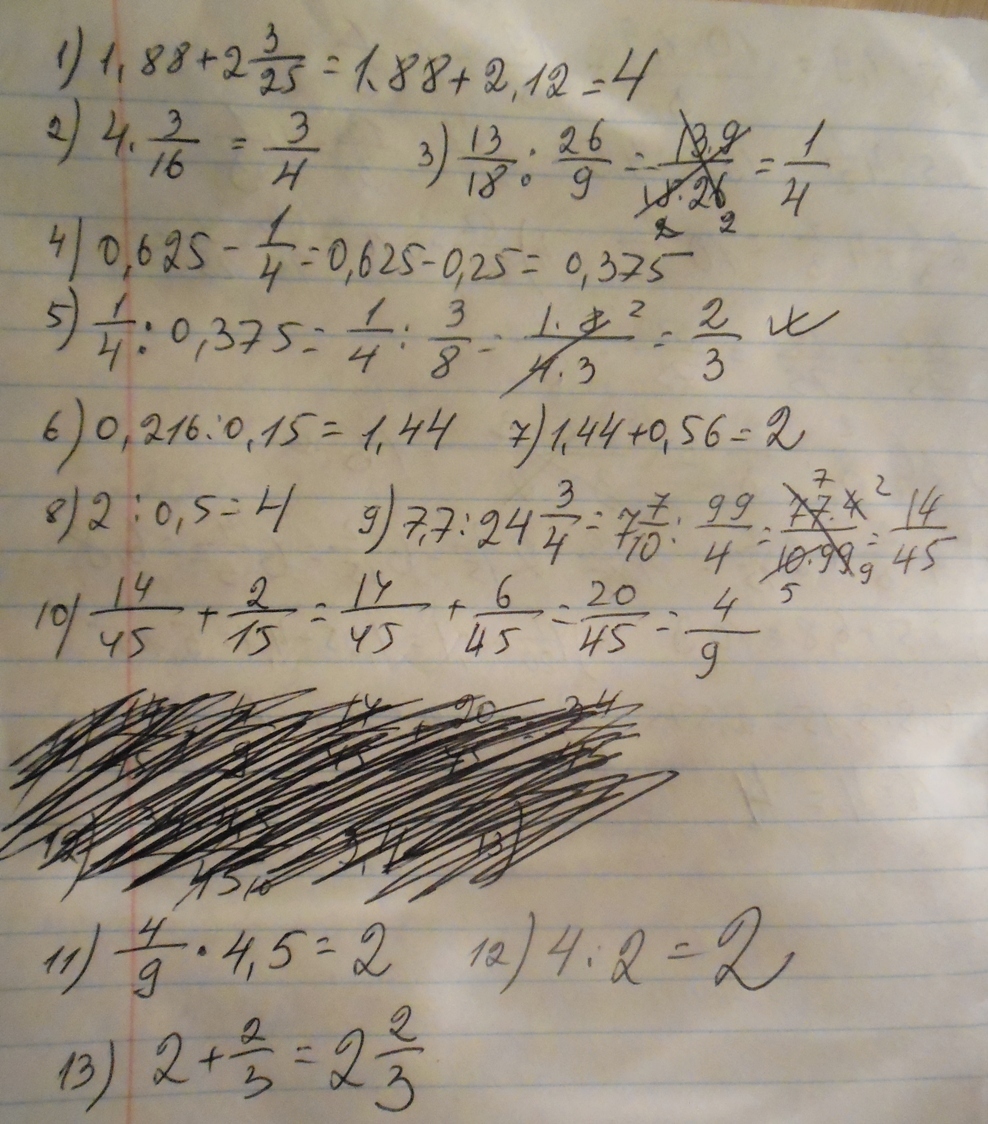 1) 1,88+2 3/25 = 1.88+2,12=4
2) 4·3/16 = 3/4 3) 13/18 : 26/9 = 13·9/18·26 2 2 = 1/4
4) 0,625-1/4=0,625-0,25=0,375
5) 1/4 : 0,375=1/4 : 3/8 = 1·8 2/4·3 = 2/3
6) 0,216:0,15=1,44 7) 1,44+0,56=2
8) 2:0,5=4 9) 7,7:24 3/4 = 7 7/10 : 99/4 = 7 77·4 2/10·99 5 9 = 14/45
10) 14/45 + 2/15 = 14/45 + 6/45 = 20/45 = 4/9
11) 4/9 · 4,5=2 12) 4:2=2
13) 2+2/3=2 2/3